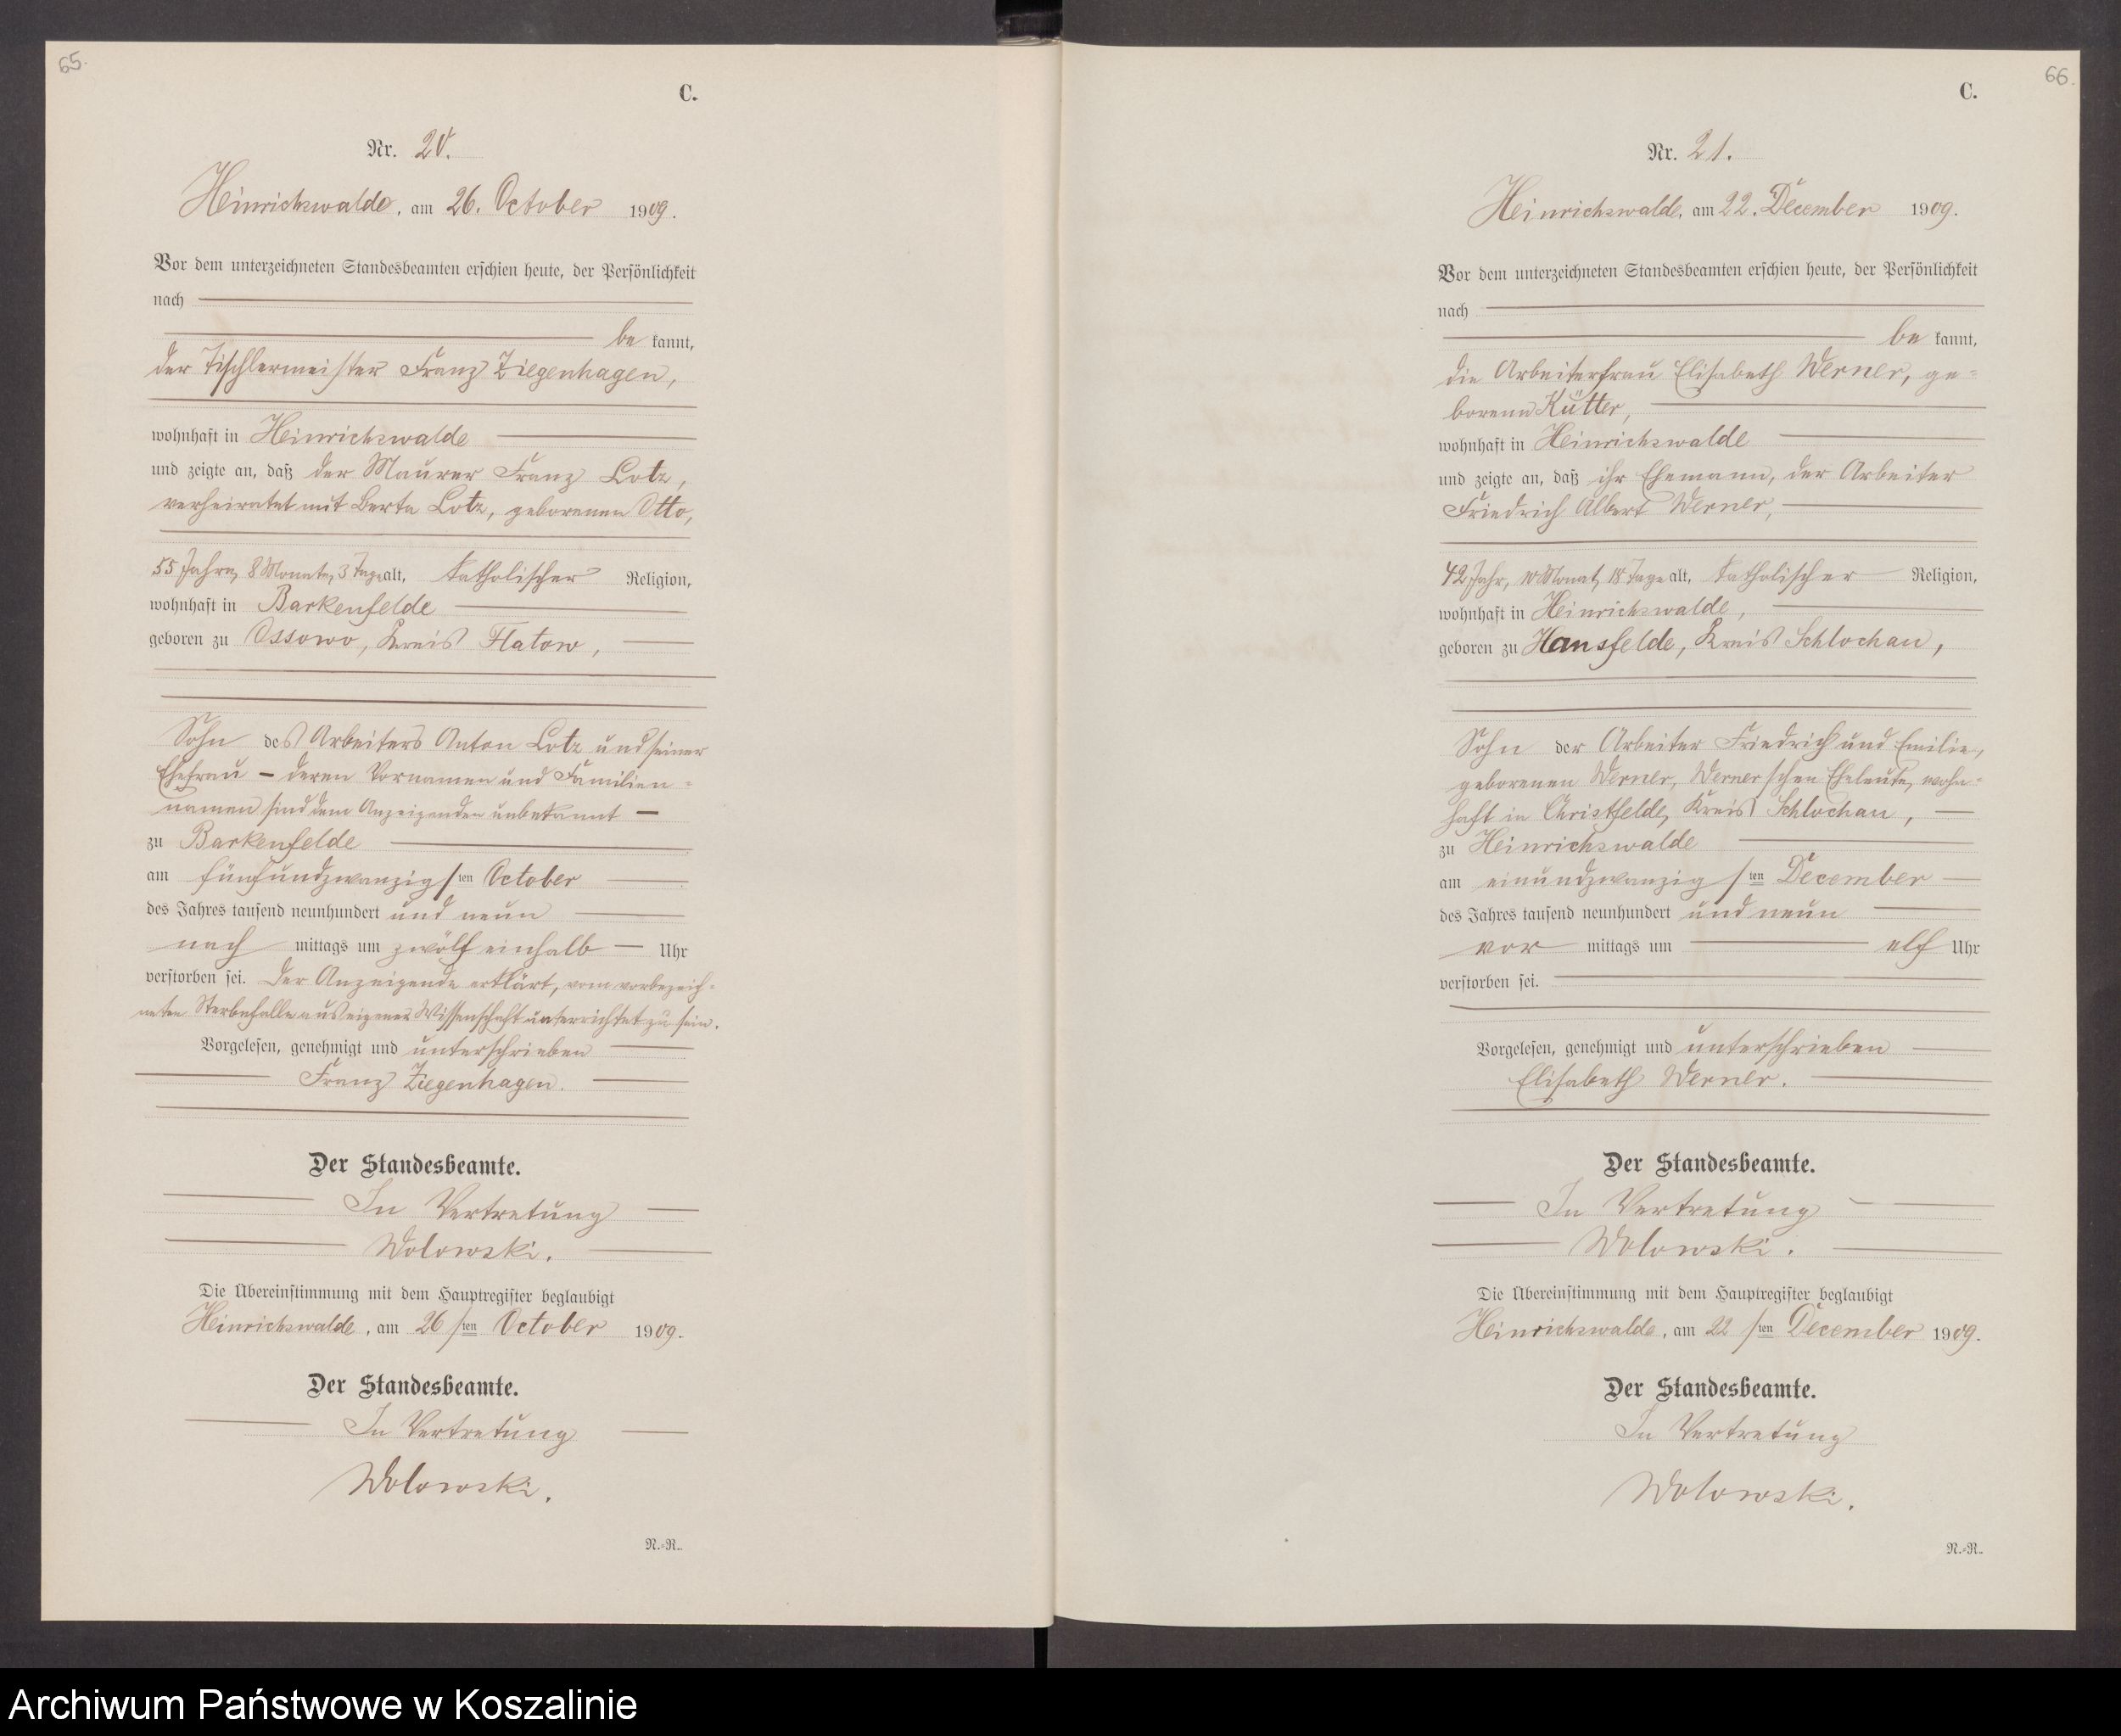 65.
C.
Nr. 20.
Heinrichswalde, am 26. October 1909.
Vor dem unterzeichneten Standesbeamten erschien heute, der Persönlichkeit
nach
be kannt,
der Tischlermeister Franz Ziegenhagen,
wohnhaft in Heinrichswalde
und zeigte an, daß der Maurer Franz Lotz,
verheiratet mit Berta Lotz, geborenen Otto,
55 Jahre, 8 Monate, 3 Tage alt, katholischer Religion,
wohnhaft in Barkenfelde
geboren zu Ossowo, Kreis Flatow,
Sohn des Arbeiters Anton Lotz und seiner
Ehefrau – deren Vornamen und Familien=
namen sind dem Anzeigenden unbekannt –
zu Barkenfelde
am fünfundzwanzigsten October
des Jahres tausend neunhundert und neun
nach mittags um zwölf einhalb Uhr
verstorben sei. Der Anzeigende erklärt, vom vorbezeich=
neten Sterbefalle aus eigener Wissenschaft unterrichtet zu sein.
Vorgelesen, genehmigt und unterschrieben
Franz Ziegenhagen.
Der Standesbeamte.
In Vertretung
Wolowski.
Die Übereinstimmung mit dem Hauptregister beglaubigt
Heinrichswalde, am 26 sten October 1909.
Der Standesbeamte.
In Vertretung
Wolowski.
N.=R..
66.
C.
Nr. 21.
Heinrichswalde, am 22. December 1909.
Vor dem unterzeichneten Standesbeamten erschien heute, der Persönlichkeit
nach
be kannt,
die Arbeiterfrau Elisabeth Werner, ge=
borene Kütter,
wohnhaft in Heinrichswalde
und zeigte an, daß ihr Ehemann, der Arbeiter
Friedrich Albert Werner,
42 Jahr, 10 Monat, 18 Tage alt, katholischer Religion,
wohnhaft in Heinrichswalde,
geboren zu Hansfelde, Kreis Schlochau,
Sohn der Arbeiter Friedrich und Emilie,
geborenen Werner, Werner'schen Eheleute, wohn=
haft in Christfelde, Kreis Schlochau,
zu Heinrichswalde
am einundzwanzigsten December
des Jahres tausend neunhundert und neun
vor mittags um elf Uhr
verstorben sei.
Vorgelesen, genehmigt und unterschrieben
Elisabeth Werner.
Der Standesbeamte.
In Vertretung
Wolowski.
Die Übereinstimmung mit dem Hauptregister beglaubigt
Heinrichswalde, am 22 sten December 1909.
Der Standesbeamte.
In Vertretung
Wolowski.
N.=R..
Archiwum Państwowe w Koszalinie